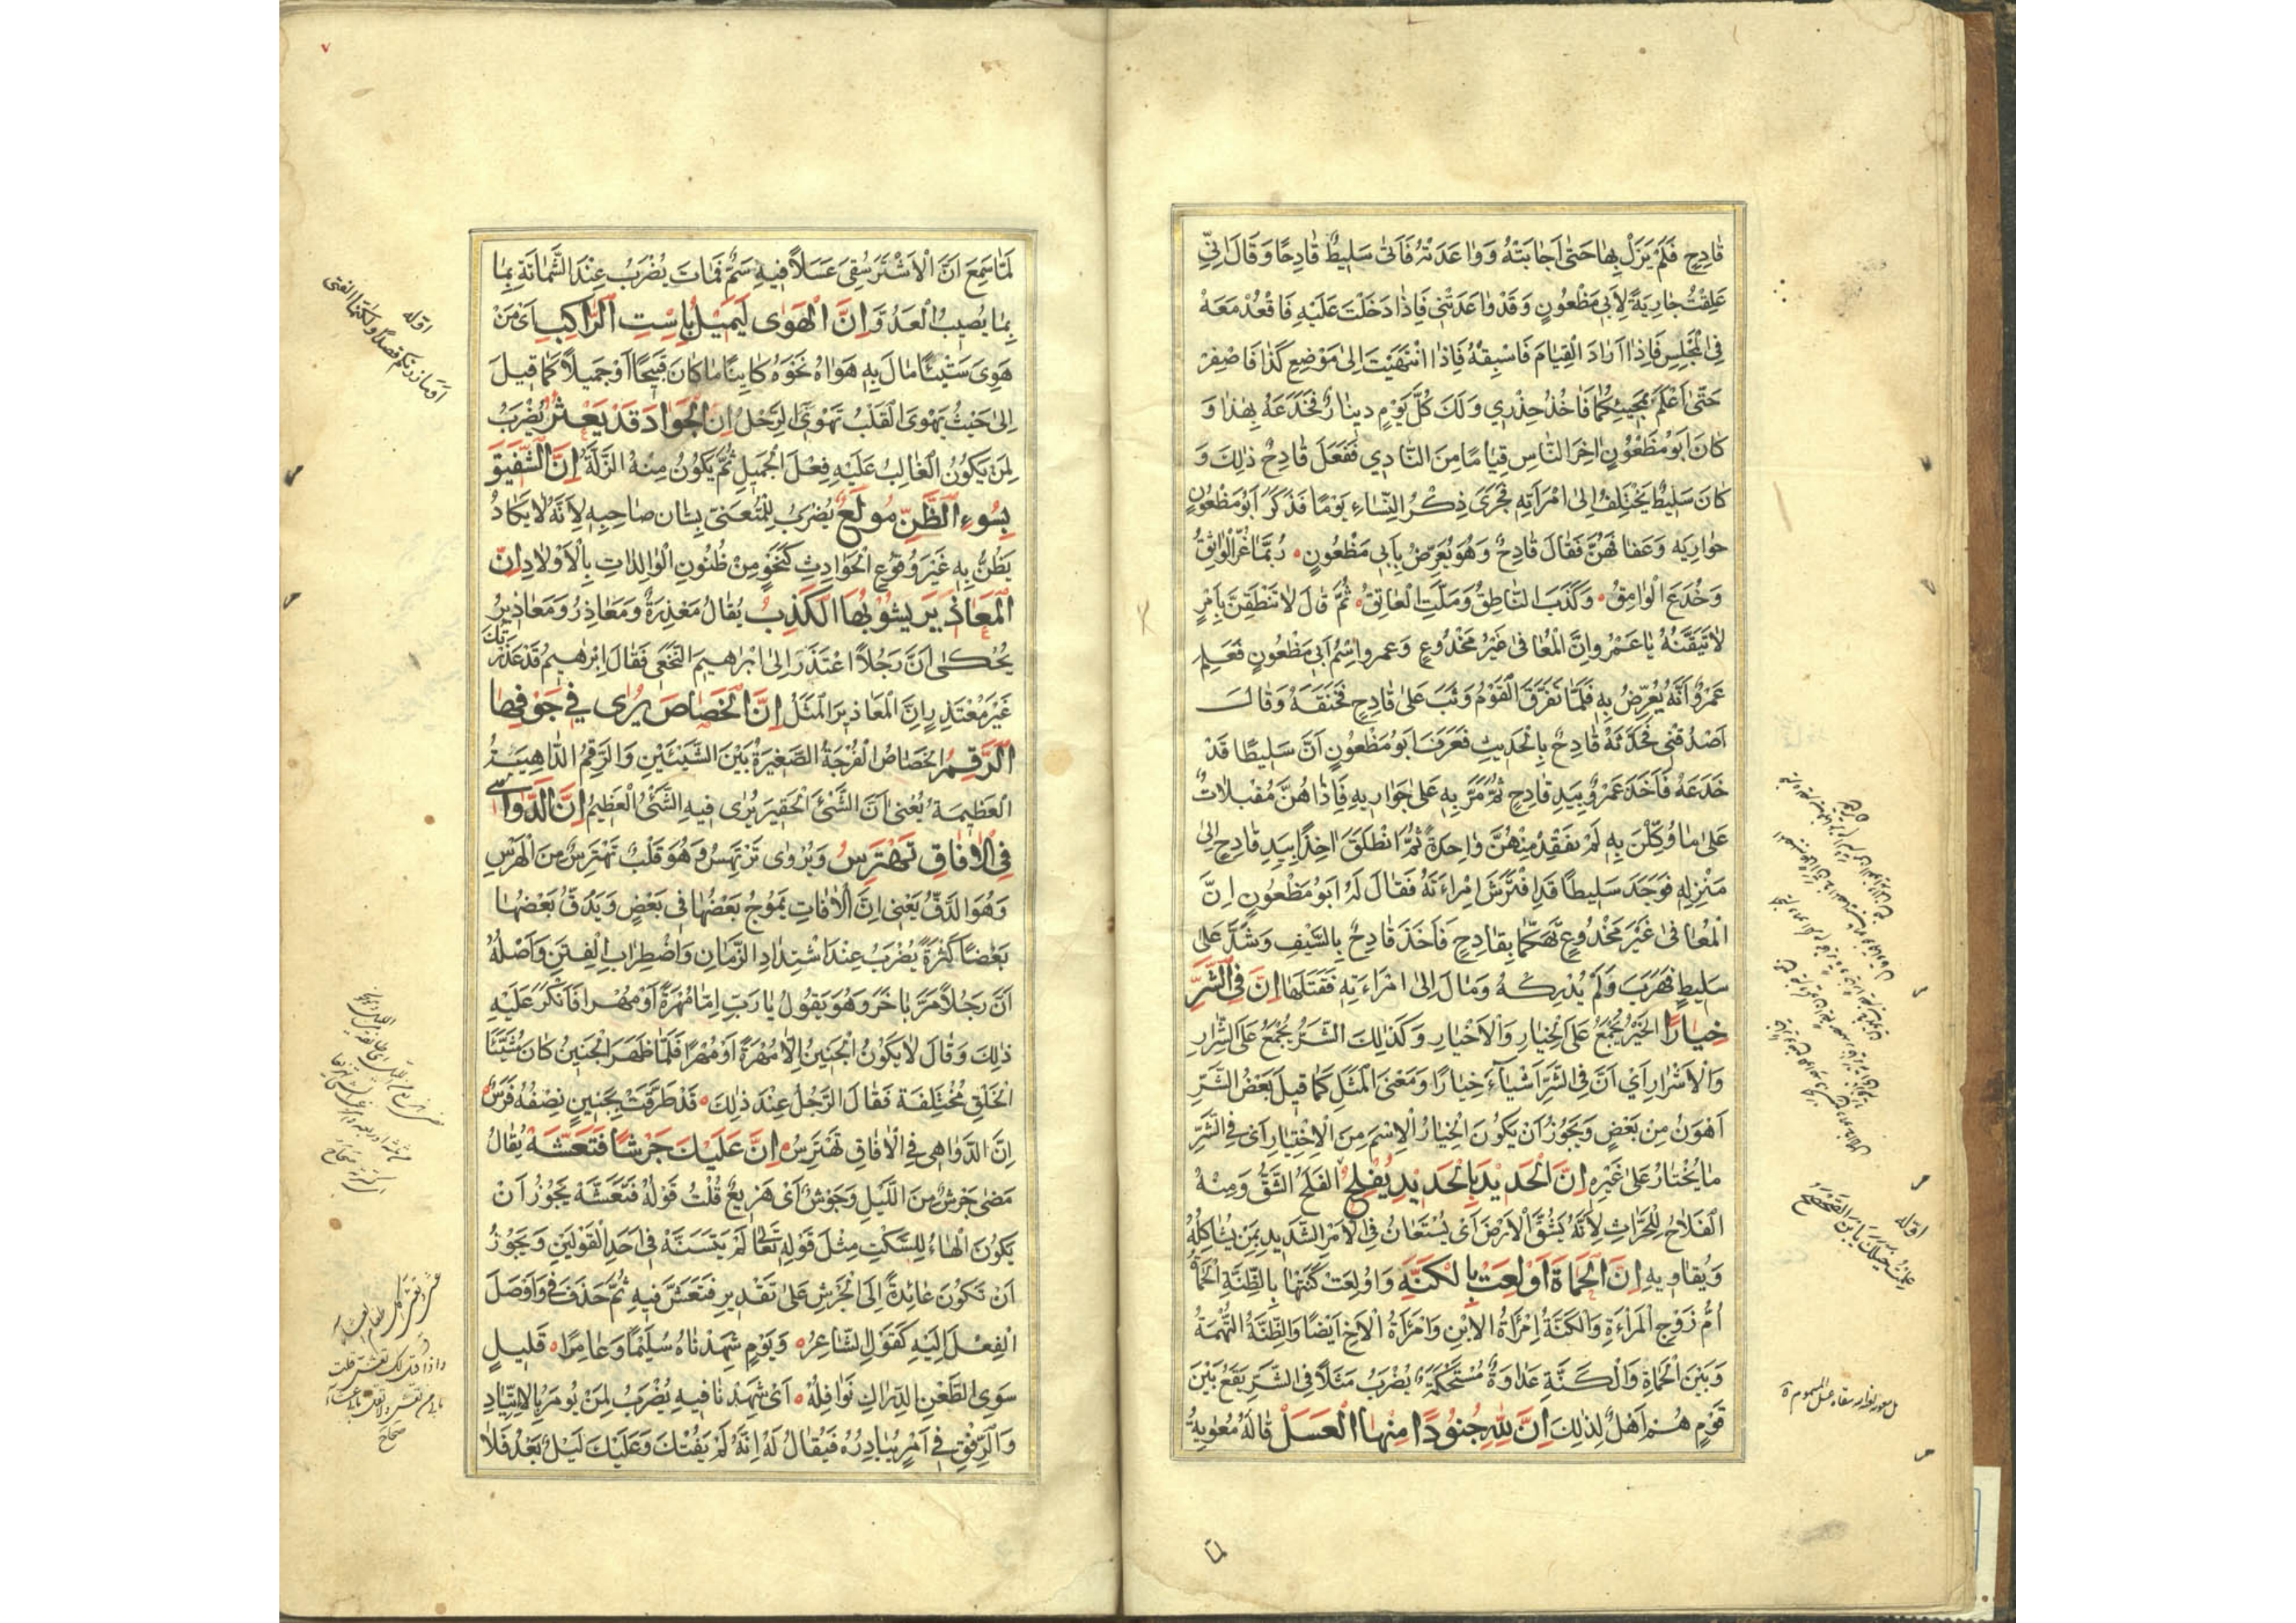 قَادِحٍ فَلَمْ يَزَلْ بِهَا حَتَّى اَجَابَتْهُ وَوَاعَدَتْهُ فَاَتَى سَلِيطٌ قَادِحًا وَقَالَ اِنِّي
عَلِقْتُ جَارِيَةً لِاَبِي مَظْعُونٍ وَقَدْ وَاعَدَتْنِي فَاِذَا دَخَلْتَ عَلَيْهِ فَاقْعُدْ مَعَهُ
فِي الْمَجْلِسِ فَاِذَا اَرَادَ الْقِيَامَ فَاسْبِقْهُ فَاِذَا انْتَهَيْتَ اِلَى مَوْضِعِ كَذَا فَاصْفِرْ
حَتَّى اَعْلَمَ بِمَجِيئِكُمَا فَاخُذَ حِذْرِي وَلَكَ كُلَّ يَوْمٍ دِينَارٌ فَخَدَعَهُ بِهَذَا وَ
كَانَ اَبُو مَظْعُونٍ اٰخِرَ النَّاسِ قِيَامًا مِنَ النَّادِي فَفَعَلَ قَادِحٌ ذٰلِكَ وَ
كَانَ سَلِيطٌ يَخْتَلِفُ اِلَى امْرَاَتِهِ فَجَرَى ذِكْرُ النِّسَاءِ يَوْمًا فَذَكَرَ اَبُو مَظْعُونٍ
جَوَارِيَه وَعَفَافَهُنَّ فَقَالَ قَادِحٌ وَهُوَ يُعَرِّضُ بِاَبِي مَظْعُونٍ رُبَّمَا غُرَّ الْوَاثِقُ
وَخُدِعَ الْوَامِقُ وَكَذَبَ النَّاطِقُ وَمَلَّتِ الْعَاتِقُ ثُمَّ قَالَ لَا تَنْطِقَنَّ بِاَمْرٍ
لَا تَيَقَّنُهُ يَا عَمْرُ واِنَّ الْمُعَافٰى غَيْرُ مَخْدُوعٍ وَعمرو اِسْمُ اَبِي مَظْعُونٍ فَعَلِمَ
عَمْرٌو اَنَّهُ يُعَرِّضُ بِهِ فَلَمَّا تَفَرَّقَ الْقَوْمُ وَثَبَ عَلَى قَادِحٍ فَخَنَقَهُ وَقَالَ
اَصْدُقْنِي فَحَدَّثَهُ قَادِحٌ بِالْحَدِيثِ فَعَرَفَ اَبُو مَظْعُونٍ اَنَّ سَلِيطًا قَدْ
خَدَعَهُ فَاَخَذَ عَمْرٌو بِيَدِ قَادِحٍ ثُمَّ مَرَّ بِهِ عَلَى جَوَارِيهِ فَاِذَا هُنَّ مُقْبِلَاتٌ
عَلَى مَا وُكِّلْنَ بِهِ لَمْ يَفْقِدْ مِنْهُنَّ وَاحِدَةً ثُمَّ انْطَلَقَ اٰخِذًا بِيَدِ قَادِحٍ اِلَى
مَنْزِلِهِ فَوَجَدَ سَلِيطًا قَدِ افْتَرَشَ امْرَاَتَهُ فَقَالَ لَهُ اَبُو مَظْعُونٍ اِنَّ
الْمُعَافٰى غَيْرَ مَخْدُوعٍ تَهَكُّمًا بِقَادِحٍ فَاَخَذَ قَادِحٌ بِالسَّيْفِ وَشَدَّ عَلَى
سَلِيطٍ فَهَرَبَ وَلَمْ يُدْرِكْهُ وَمَالَ اِلَى امْرَاَتِهِ فَقَتَلَهَا اِنَّ فِي الشَّرِّ
خِيَارًا الْخَيْرُ يُجْمَعُ عَلَى الْخِيَارِ وَالْاَخْيَارِ وَكَذٰلِكَ الشَّرُّ يُجْمَعُ عَلَى الشِّرَارِ
وَالْاَشْرَارِ اَيْ اَنَّ فِي الشَّرِّ اَشْيَاءَ خِيَارًا وَمَعْنَى الْمَثَلِ كَمَا قِيلَ بَعْضُ الشَّرِّ
اَهْوَنُ مِنْ بَعْضٍ وَيَجُوزُ اَنْ يَكُونَ الْخِيَارُ الْاِسْمَ مِنَ الْاِخْتِيَارِ اَيْ فِي الشَّرِّ
مَا يُخْتَارُ عَلَى غَيْرِهِ اِنَّ الْحَدِيدَ بِالْحَدِيدِ يُفْلَحُ الْفَلَحُ الشَّقُّ وَمِنْهُ
الْفَلَّاحُ لِلْحَرَّاثِ لِاَنَّهُ يَشُقُّ الْاَرْضَ اَيْ يُسْتَعَانُ فِي الْاَمْرِ الشَّدِيدِ بِمَنْ يُشَاكِلُهُ
وَيُقَاوِيهِ اِنَّ الْحَمَاةَ اُولِعَتْ بِالْكَنَّهِ وَاُولِعَتْ كَنَّتُهَا بِالظِّنَّهِ الْحَمَاةُ
اُمُّ زَوْجِ الْمَرْاَةِ وَالْكَنَّةُ اِمْرَاَةُ الْاِبْنِ وَامْرَاَةُ الْاَخِ اَيْضًا وَالظِّنَّةُ التُّهْمَةُ
وَبَيْنَ الْحَمَاةِ وَالْكَنَّةِ عَدَاوَةٌ مُسْتَحْكَمَةٌ يُضْرَبُ مَثَلًا فِي الشَّرِّ يَقَعُ بَيْنَ
قَوْمٍ هُمْ اَهْلٌ لِذٰلِكَ اِنَّ لِلّٰهِ جُنُودًا مِنْهَا الْعَسَلُ قَالَهُ مُعَوِيَةُ
لمّا
اقوله
٧
لَمَّا سَمِعَ اَنَّ الْاَشْتَرَ سُقِيَ عَسَلًا فِيهِ سَمٌّ فَمَاتَ يُضْرَبُ عِنْدَ الشَّمَاتَةِ بِمَا
بِمَا يُصِيبُ الْعَدُوَّ اِنَّ الْهَوٰى لَيَمِيلُ بِاِسْتِ الرَّاكِبِ اَيْ مَنْ
هَوِيَ شَيْئًا مَالَ بِهِ هَوَاهُ نَحْوَهُ كَائِنًا مَا كَانَ قَبِيحًا اَوْ جَمِيلًا كَمَا قِيلَ
اِلَى حَيْثُ يَهْوَى الْقَلْبُ تَهْوِي الرِّجْلُ اِنَّ الْجَوَادَ قَدْ يَعْثُرُ يُضْرَبُ
لِمَنْ يَكُونُ الْغَالِبُ عَلَيْهِ فِعْلَ الْجَمِيلِ ثُمَّ يَكُونُ مِنْهُ الزَّلَّةُ اِنَّ الشَّفِيقَ
بِسُوءِ الظَّنِّ مُولَعٌ يُضْرَبُ لِلْمُتَعَنِّيِ بِشَان صَاحِبِهِ لِاَنَّهُ لَا يَكَادُ
يَظُنُّ بِهِ غَيْرَ وُقُوعِ الْحَوَادِثِ كَنَحْوٍ مِنْ ظُنُونِ الْوَالِدَاتِ بِالْاَوْلَادِ اِنَّ
الْمَعَاذِيرَ يَشُوبُهَا الْكَذِبُ يُقَالُ مَعْذِرَةٌ وَمَعَاذِرُ وَمَعَاذِيرُ
يُحْكٰى اَنَّ رَجُلًا اعْتَذَرَ اِلَى اِبْرَاهِيمَ النَّخَعِي فَقَالَ اِبْرَاهِيمُ قَدْ عَذَرْتُكَ
غَيْرَ مُعْتَذِرٍ اِنَّ الْمَعَاذِيرَ الْمَثَلُ اِنَّ الْخَصَاصَ يُرٰى فِي جَوْفِهَا
الرَّقِمُ الْخَصَاصُ الْفُرْجَةُ الصَّغِيرَةُ بَيْنَ الشَّيْئَيْنِ وَالرَّقِمُ الدَّاهِيَةُ
الْعَظِيمَةُ يُعْنٰى اَنَّ الشَّيْءَ الْحَقِيرَ يُرٰى فِيهِ الشَّيْءُ الْعَظِيمُ اِنَّ الدَّوَاهِي
فِي الْاٰفَاقِ تَهْتَرِسُ وَيُرْوٰى تَرْتَهِسُ وَهُوَ قَلْبُ تَهْتَرِسُ مِنَ الْهَرْسِ
وَهُوَ الدَّقُّ يَعْنِي اِنَّ الْاٰفَاتِ يَمُوجُ بَعْضُهَا فِي بَعْضٍ وَيَدُقُّ بَعْضُهَا
بَعْضًا كَثْرَةً يُضْرَبُ عِنْدَ اشْتِدَادِ الزَّمَانِ وَاضْطِرَابِ الْفِتَنِ وَاَصْلُهُ
اَنَّ رَجُلًا مَرَّ بِاٰخَرَ وَهُوَ يَقُولُ يَا رَبِّ اِمَّا مُهْرَةً اَوْ مُهْرًا فَاَنْكَرَ عَلَيْهِ
ذٰلِكَ وَقَالَ لَا يَكُونُ الْجَنِينُ اِلَّا مُهْرَةً اَوْ مُهْرًا فَلَمَّا ظَهَرَ الْجَنِينُ كَانَ مُشَيَّئًا
الْخَلْقِ مُخْتَلِفَهُ فَقَالَ الرَّجُلُ عِنْدَ ذٰلِكَ قَدْ طَرَّقَتْ بِجَنِينٍ نِصْفُهُ فَرَسٌ
اِنَّ الدَّوَاهِي فِي الْاٰفَاقِ تَهْتَرِسُ اِنَّ عَلَيْكَ جَرْشًا فَتَعَشَّهْ يُقَالُ
مَضٰى جَرْشٌ مِنَ اللَّيْلِ وَجَوْشٌ اَيْ هَزِيعٌ قُلْتُ قَوْلُهُ فَتَعَشَّهْ يَجُوزُ اَنْ
يَكُونَ الْهَاءُ لِلسَّكْتِ مِثْلَ قَوْلِهِ تَعَالٰى لَمْ يَتَسَنَّهْ فِي اَحَدِ الْقَوْلَيْنِ وَيَجُوزُ
اَنْ تَكُونَ عَائِدَةً اِلَى الْجَرْشِ عَلَى تَقْدِيرِ فَتَعَشَّ فِيهِ ثُمَّ حَذَفَ فِي وَاَوْصَلَ
الْفِعْلَ اِلَيْهِ كَقَوْلِ الشَّاعِرُ وَيَوْمٍ شَهِدْنَاهُ سُلَيْمًا وَعَامِرًا قَلِيلٍ
سِوَى الطَّعْنِ الدِّرَاكِ نَوَافِلُهْ اَيْ شَهِدْنَا فِيهِ يُضْرَبُ لِمَنْ يُومَرُ بِالْاِتِّئَادِ
وَالرِّفْقِ فِي اَمْرٍ يُبَادِرُهُ فَيُقَالُ لَهُ اِنَّهُ لَمْ يَفُتْكَ وَعَلَيْكَ لَيْلٌ بَعْدُ فَلَا
اقوله
صحاح